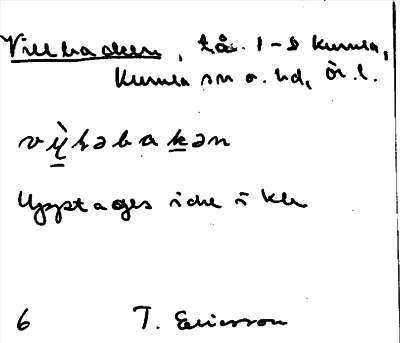 Villbacken, tå. 1-8 Kumla,
Kumla sn o. hd, Ör. l.
vỳḷəbakən
Upptages icke i kle
6 T. Ericsson